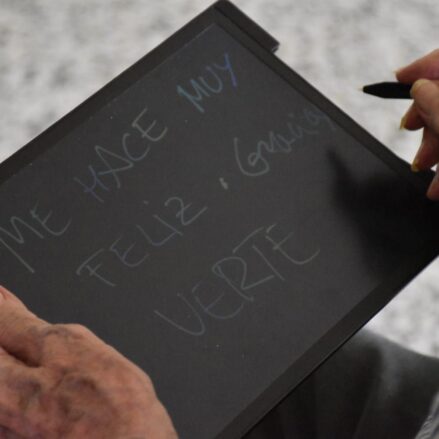 ME HACE MUY
FELIZ,
VERTE